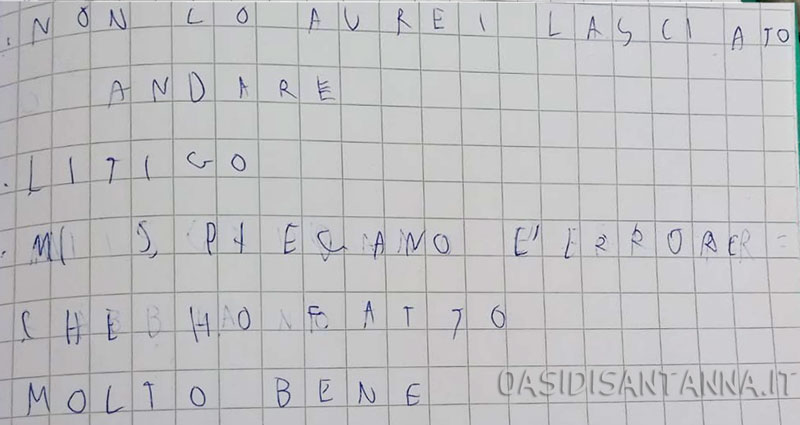 . NON LO AVREI LASCIATO
ANDARE
. LITIGO
. MI SPIEGANO E' ERRORE
CHE HO FATTO
MOLTO BENE
OASIDISANTANNA.IT